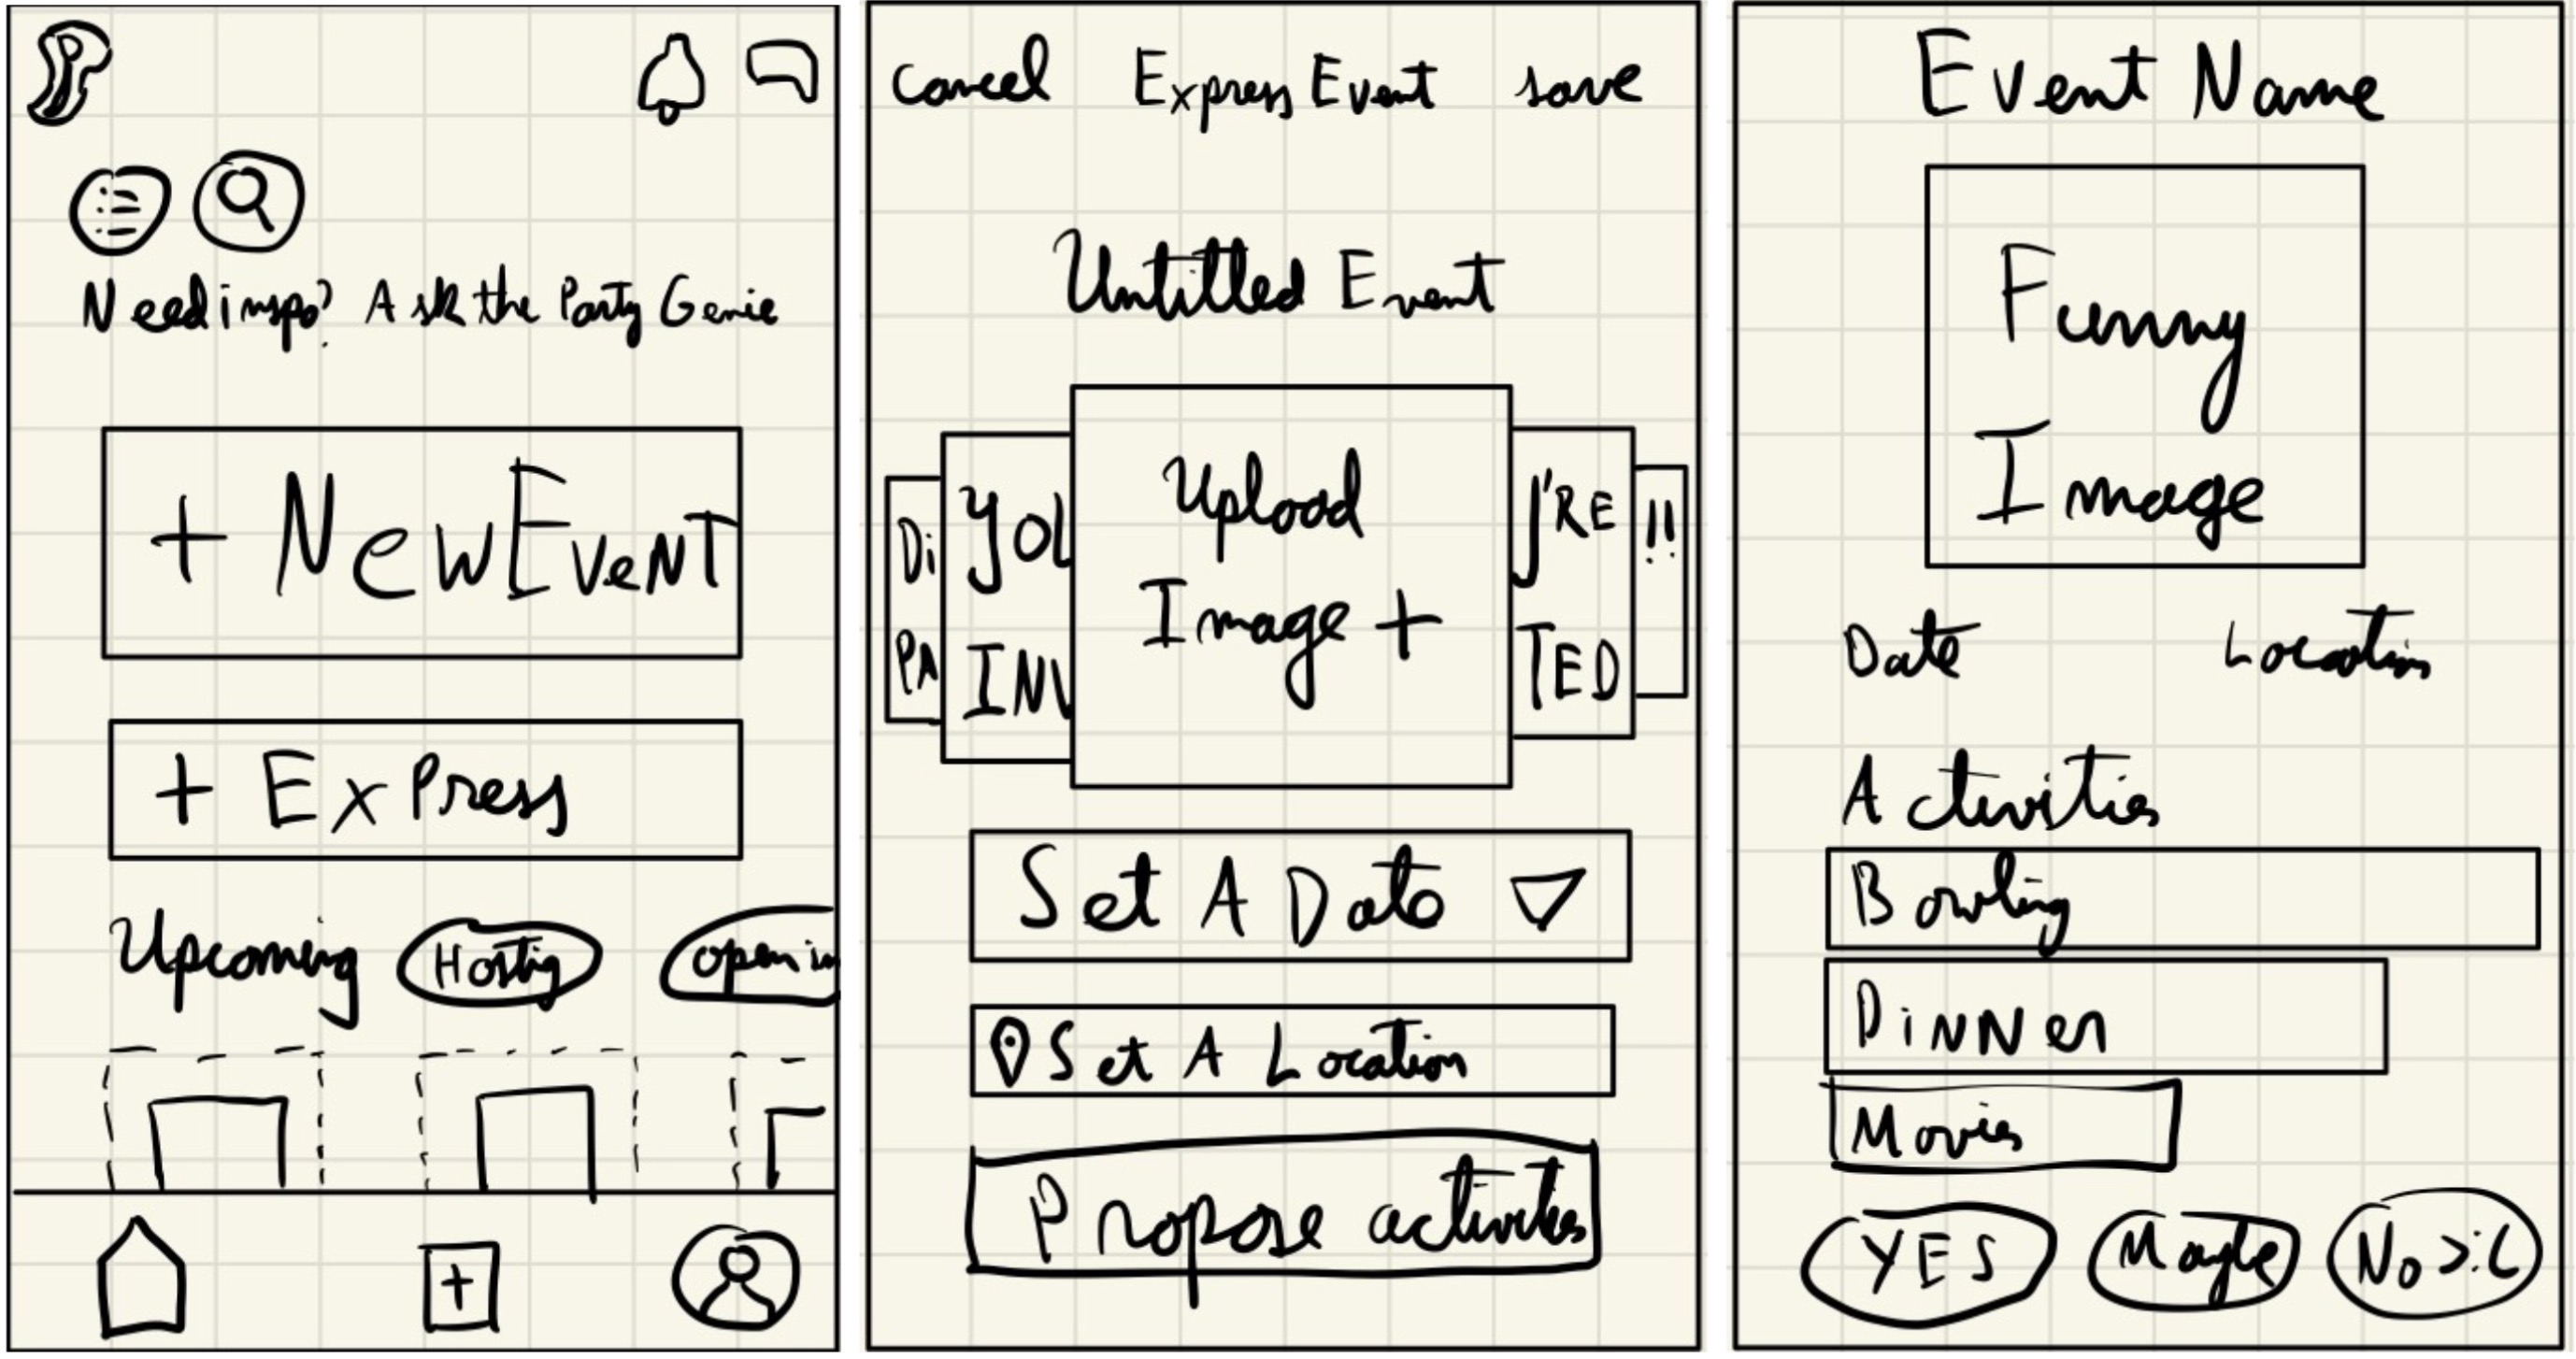 P
Need inspo? Ask the Party Genie
+ New Event
+ Express
Upcoming Hosting open in
+
Cancel Express Event save
Untitled Event
Di PA
YOU INV
Upload
Image +
'RE TED
!!
Set A Date
Set A Location
Propose activities
Event Name
Funny
Image
Date Location
Activities
Bowling
Dinner
Movies
YES Maybe No >:(